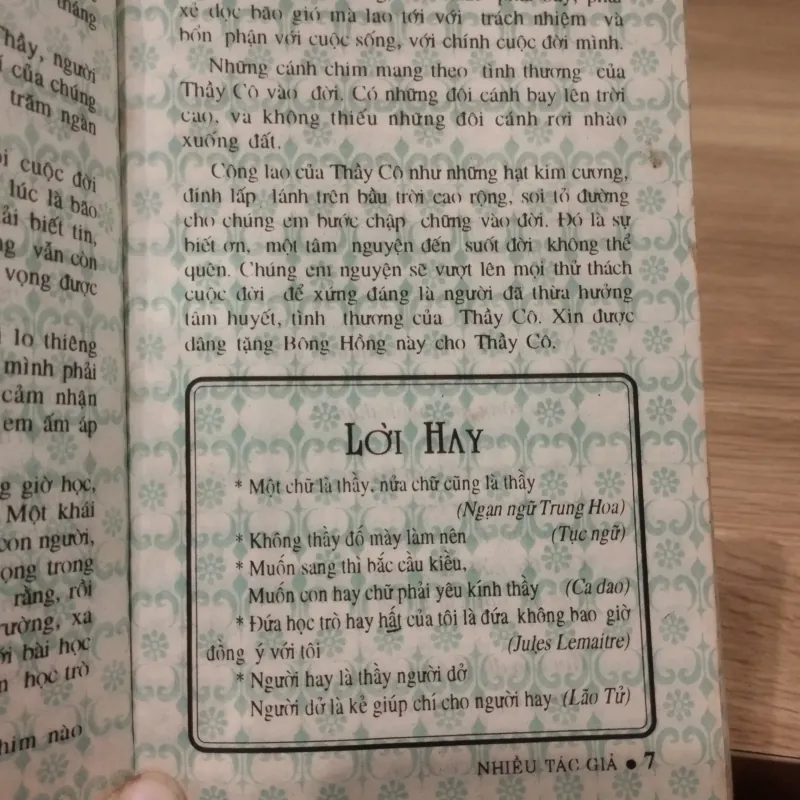 tháng
Thầy, người
của chúng
trăm ngàn
cuộc đời
lúc là bão
biết tin,
vẫn còn
vọng được
lo thiêng
mình phải
cảm nhận
em ấm áp
giờ học,
Một khái
con người,
trong
rằng, rồi
xa
bài học
học trò
nào
xé dọc bão gió mà lao tới với trách nhiệm và
bổn phận với cuộc sống, với chính cuộc đời mình.
Những cánh chim mang theo tình thương của
Thầy Cô vào đời. Có những đôi cánh bay lên trời
cao, và không thiếu những đôi cánh rơi nhào
xuống đất.
Công lao của Thầy Cô như những hạt kim cương,
đính lấp lánh trên bầu trời cao rộng, soi tỏ đường
cho chúng em bước chập chững vào đời. Đó là sự
biết ơn, một tâm nguyện đến suốt đời không thể
quên. Chúng em nguyện sẽ vượt lên mọi thử thách
cuộc đời để xứng đáng là người đã thừa hưởng
tâm huyết, tình thương của Thầy Cô. Xin được
dâng tặng Bông Hồng này cho Thầy Cô.
LỜI HAY
* Một chữ là thầy, nửa chữ cũng là thầy
(Ngạn ngữ Trung Hoa)
* Không thầy đố mày làm nên (Tục ngữ)
* Muốn sang thì bắc cầu kiều,
Muốn con hay chữ phải yêu kính thầy (Ca dao)
* Đứa học trò hay hất của tôi là đứa không bao giờ
đồng ý với tôi (Jules Lemaitre)
* Người hay là thầy người dở
Người dở là kẻ giúp chí cho người hay (Lão Tử)
NHIỀU TÁC GIẢ ● 7